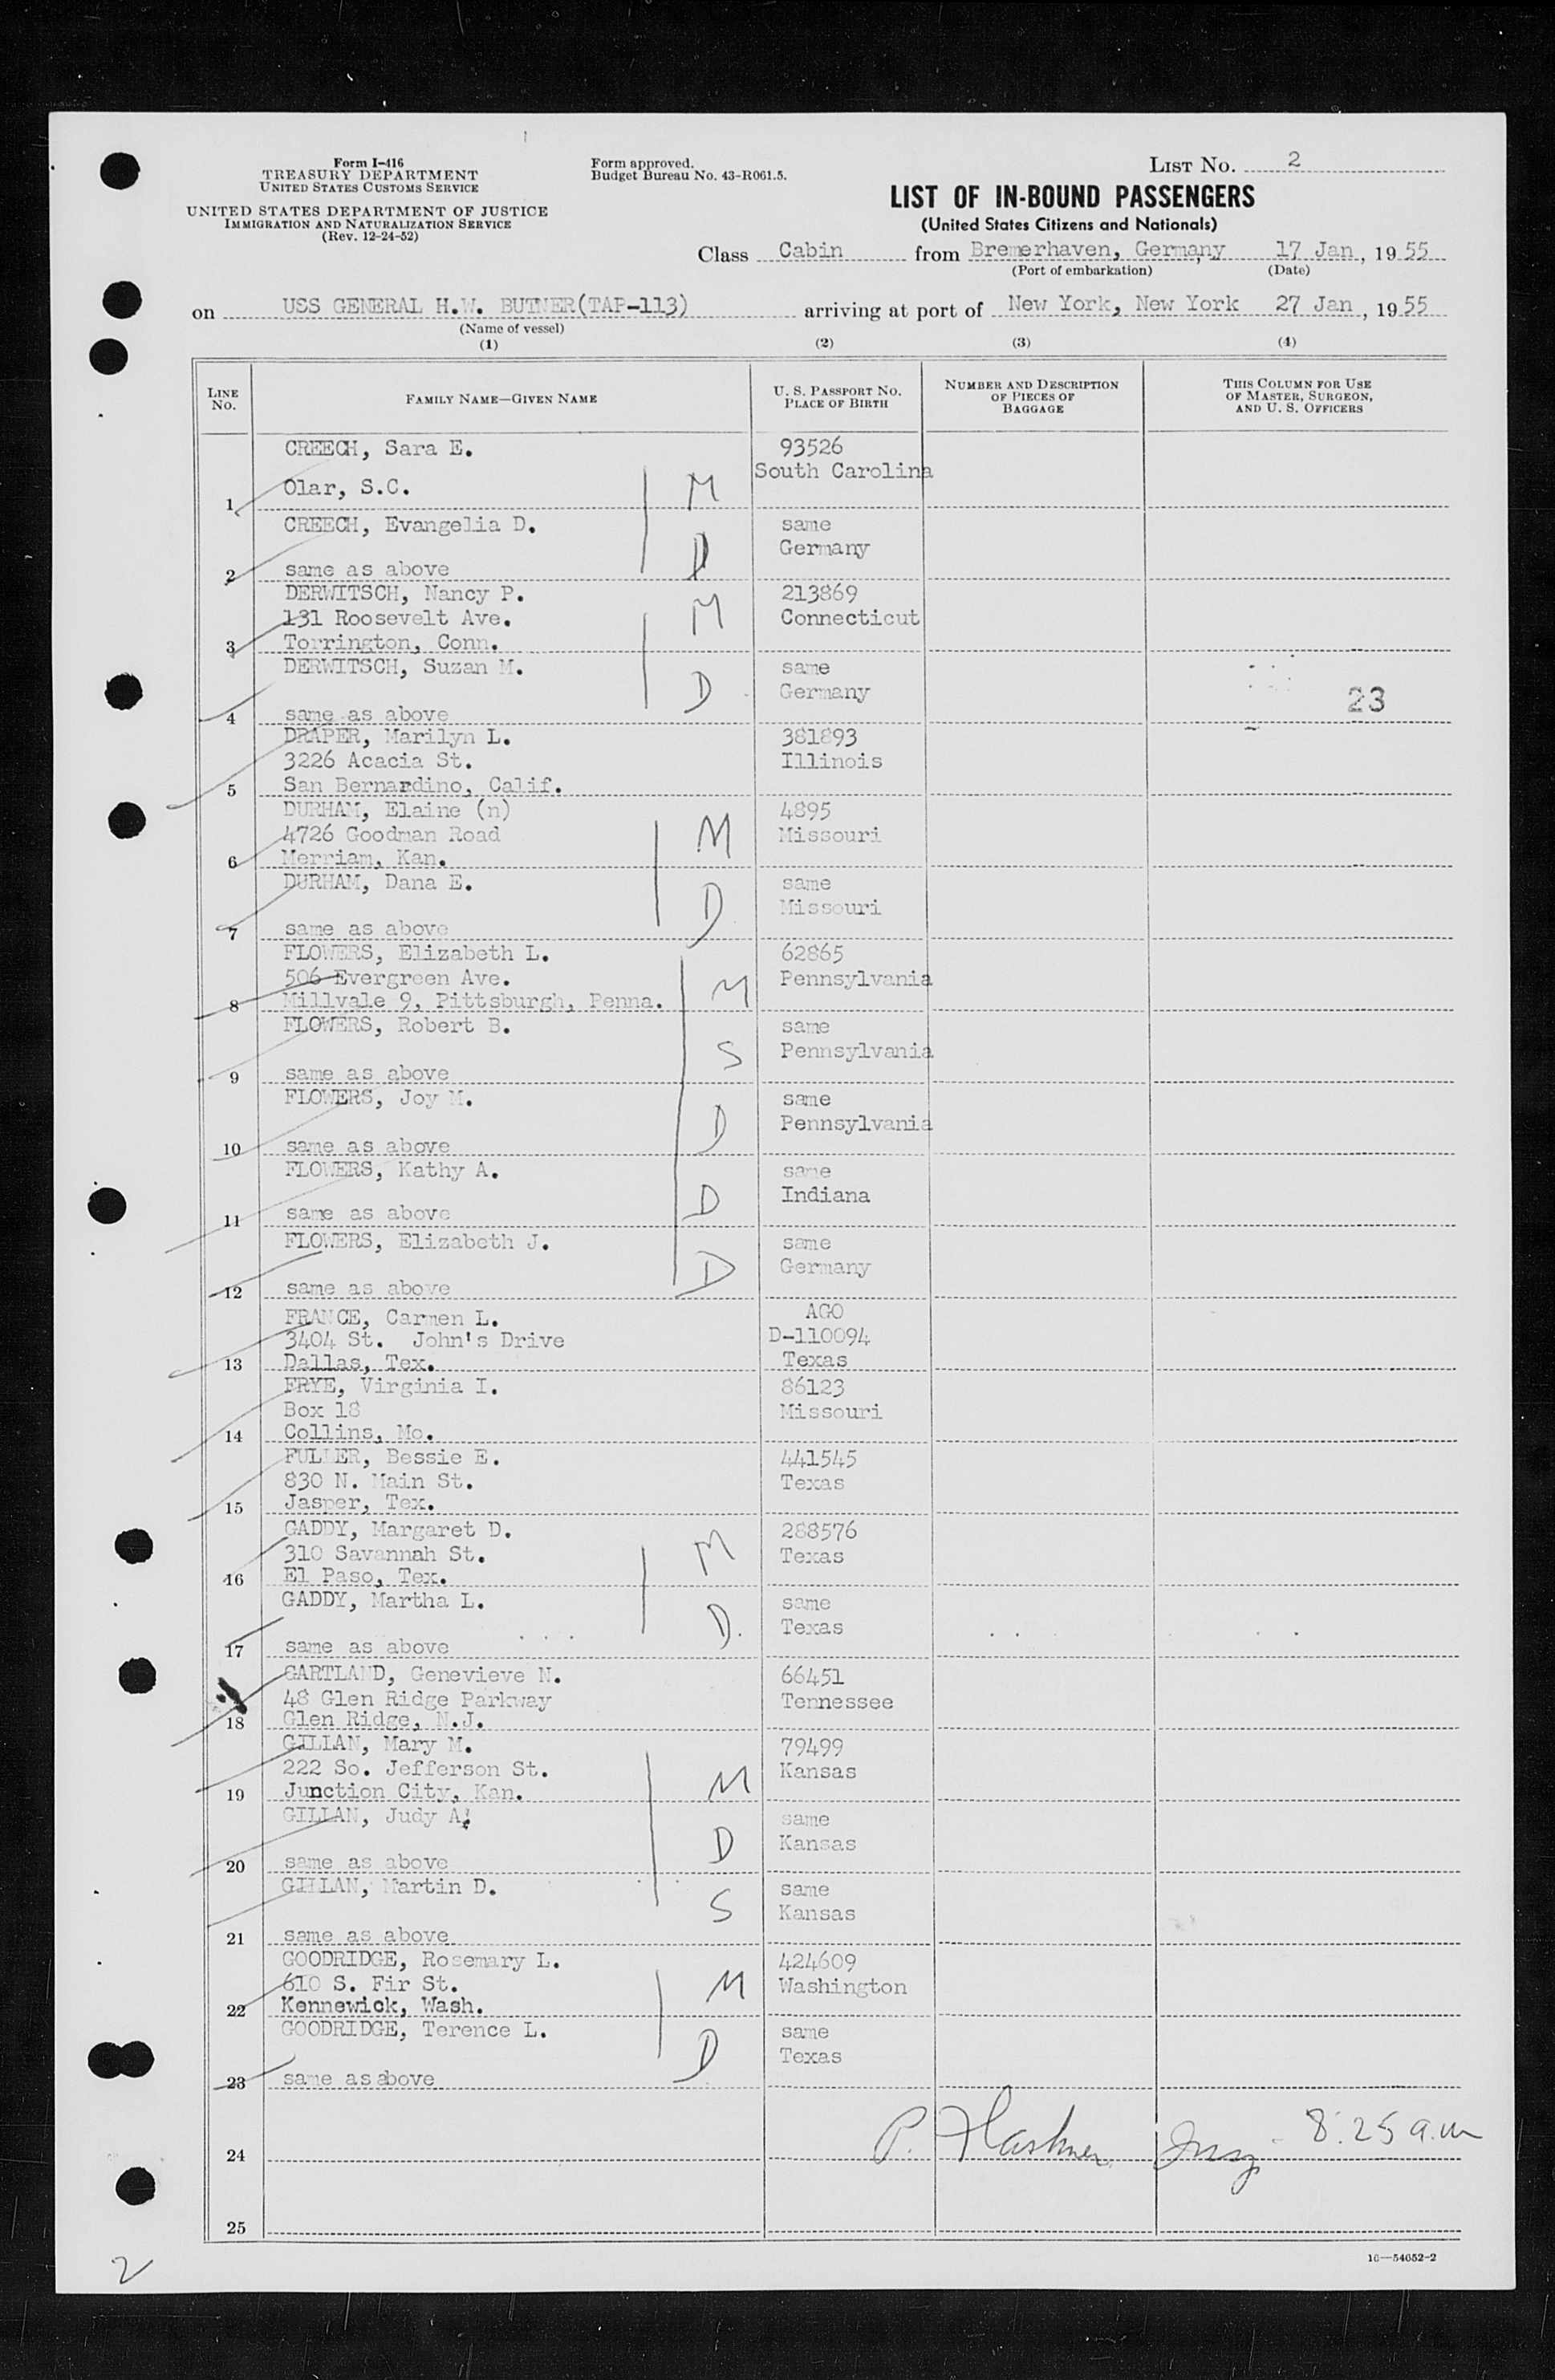 Form I-416
TREASURY DEPARTMENT
UNITED STATES CUSTOMS SERVICE
UNITED STATES DEPARTMENT OF JUSTICE
IMMIGRATION AND NATURALIZATION SERVICE
(Rev. 12-24-52)
Form approved.
Budget Bureau No. 43-R061.5.
LIST No. 2
LIST OF IN-BOUND PASSENGERS
(United States Citizens and Nationals)
Class Cabin from Bremerhaven, Germany, 17 Jan, 1955
(Port of embarkation) (Date)
on USS GENERAL H.W. BUTNER(TAP-113) arriving at port of New York, New York 27 Jan, 1955
(Name of vessel)
(1) (2) (3) (4)
LINE No.
FAMILY NAME—GIVEN NAME
U. S. PASSPORT NO.
PLACE OF BIRTH
NUMBER AND DESCRIPTION
OF PIECES OF
BAGGAGE
THIS COLUMN FOR USE
OF MASTER, SURGEON,
AND U. S. OFFICERS
CREECH, Sara E. 93526
South Carolina
Olar, S.C. M
1
CREECH, Evangelia D. same
D Germany
2 same as above
DERWITSCH, Nancy P. 213869
131 Roosevelt Ave. M Connecticut
3 Torrington, Conn.
DERWITSCH, Suzan M. same
D Germany 23
4 same as above
DRAPER, Marilyn L. 381893
3226 Acacia St. Illinois
5 San Bernardino, Calif.
DURHAM, Elaine (n) 4895
4726 Goodman Road M Missouri
6 Merriam, Kan.
DURHAM, Dana E. same
D Missouri
7 same as above
FLOWERS, Elizabeth L. 62865
506 Evergreen Ave. Pennsylvania
8 Millvale 9, Pittsburgh, Penna. M
FLOWERS, Robert B. same
S Pennsylvania
9 same as above
FLOWERS, Joy M. same
D Pennsylvania
10 same as above
FLOWERS, Kathy A. same
D Indiana
11 same as above
FLOWERS, Elizabeth J. same
D Germany
12 same as above
FRANCE, Carmen L. AGO
3404 St. John's Drive D-110094
13 Dallas, Tex. Texas
FRYE, Virginia I. 86123
Box 18 Missouri
14 Collins, Mo.
FULLER, Bessie E. 441545
830 N. Main St. Texas
15 Jasper, Tex.
GADDY, Margaret D. 288576
310 Savannah St. M Texas
16 El Paso, Tex.
GADDY, Martha L. same
D. Texas
17 same as above
GARTLAND, Genevieve N. 66451
48 Glen Ridge Parkway Tennessee
18 Glen Ridge, N.J.
GILLAN, Mary M. 79499
222 So. Jefferson St. M Kansas
19 Junction City, Kan.
GILLAN, Judy A. same
D Kansas
20 same as above
GILLAN, Martin D. same
S Kansas
21 same as above
GOODRIDGE, Rosemary L. 424609
610 S. Fir St. M Washington
22 Kennewick, Wash.
GOODRIDGE, Terence L. same
D Texas
23 same as above
P. 8:25 a.m
24
25
16—54652-2
2